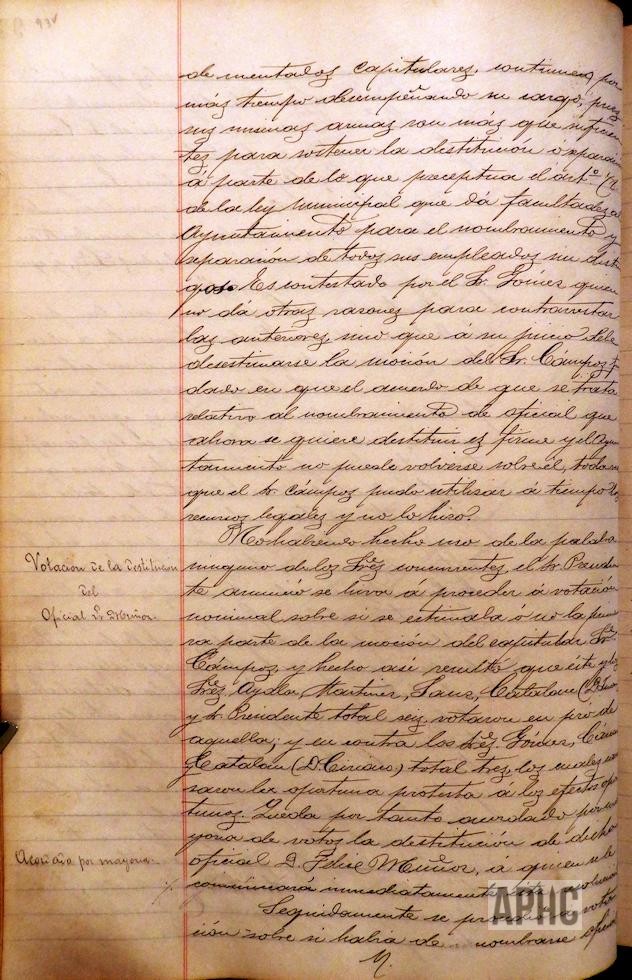 93v
de mentados capitulares, continuen por
más tiempo desempeñando su cargo, pues
sus mismas armas son más que suficien
tes para sostener la destitución ó separación
á parte de lo que preceptua el árt.º
de la ley municipal que dá facultades al
Ayuntamiento para el nombramiento y
separación de todos sus empleados
Es contestado por el Sr. Gómez quien
no dá otras razones para contrarrestar
las anteriores, sino que á su juicio debe
desestimarse la moción del Sr. Cámpos,
dado en que el acuerdo de que se trata
relativo al nombramiento de oficial que
ahora se quiere destituir es firme y el Ayun
tamiento no puede volverse sobre él, toda vez
que el Sr. Cámpos pudo utilizar á tiempo los
recursos legales y no lo hizo.
No habiendo hecho uso de la palabra
Votacion de la destitucion
del
Oficial Sr. Muñoz.
ninguno de los Sres. concurrentes, el Sr. Presiden
te anunció se iba á proceder á votación
nominal sobre si se estimaba ó no la prime
ra parte de la moción del capitular Sr.
Cámpos, y hecho así resultó que éste y los
Sres. Ayala, Martinez, Sanz, Catalan
y Sr. Presidente total seis, votaron en pró de
aquella; y en contra los Sres. Gómez,
y Catalan (D. Ciriaco) total tres, los cuales
saron la oportuna protesta á los efectos opor
tunos. Queda por tanto acordado por ma
Acordado por mayoria.
yoria de votos la destitución de dicho
oficial D. Felix Muñoz, á quien se le
comunicará inmediatamente esta resolución
Seguidamente se procedió á vota
ción sobre si habia de nombrarse
APHC